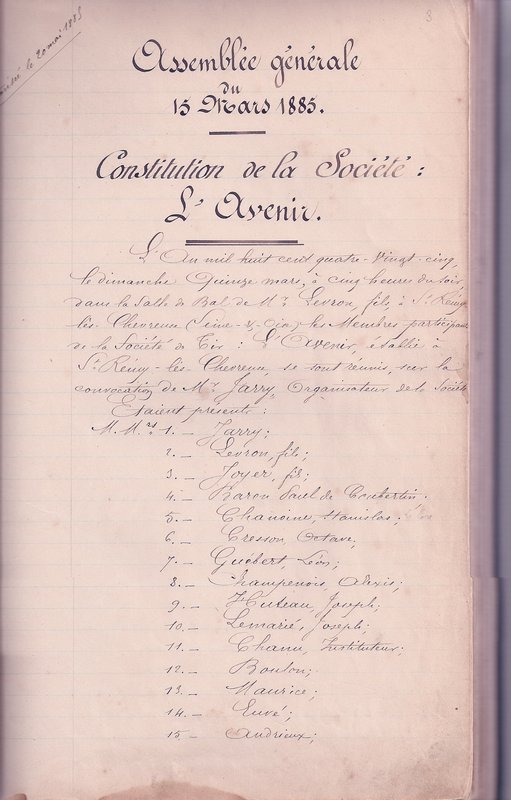 le 20 mai 1885
3
Assemblée générale
du
15 Mars 1885.
Constitution de la Société :
L'Avenir.
L'An mil huit cent quatre-vingt-cinq
le dimanche quinze mars, à cinq heures du soir,
dans la Salle de Bal de Mr. Levron, fils, à St Rémy
lès-Chevreuse (Seine-&-Oise) les Membres participants
de la Société de Tir : L'Avenir, établie à
St Rémy-lès-Chevreuse, se sont réunis, sur la
convocation de Mr Jarry, Organisateur de la Société
Etaient présents :
M.M.rs 1. — Jarry;
2. — Levron, fils;
3. — Joyer, fils;
4. — Baron Paul de Coubertin;
5. — Chanoine, Stanislas;
6. — Cresson, Octave;
7. — Guébert, Léon;
8. — Champenois, Alexis;
9. — Huteau, Joseph;
10. — Lemarié, Joseph;
11. — Chanu, Instituteur;
12. — Boulon;
13. — Maurice;
14. — Euvé;
15 — Andrieux;